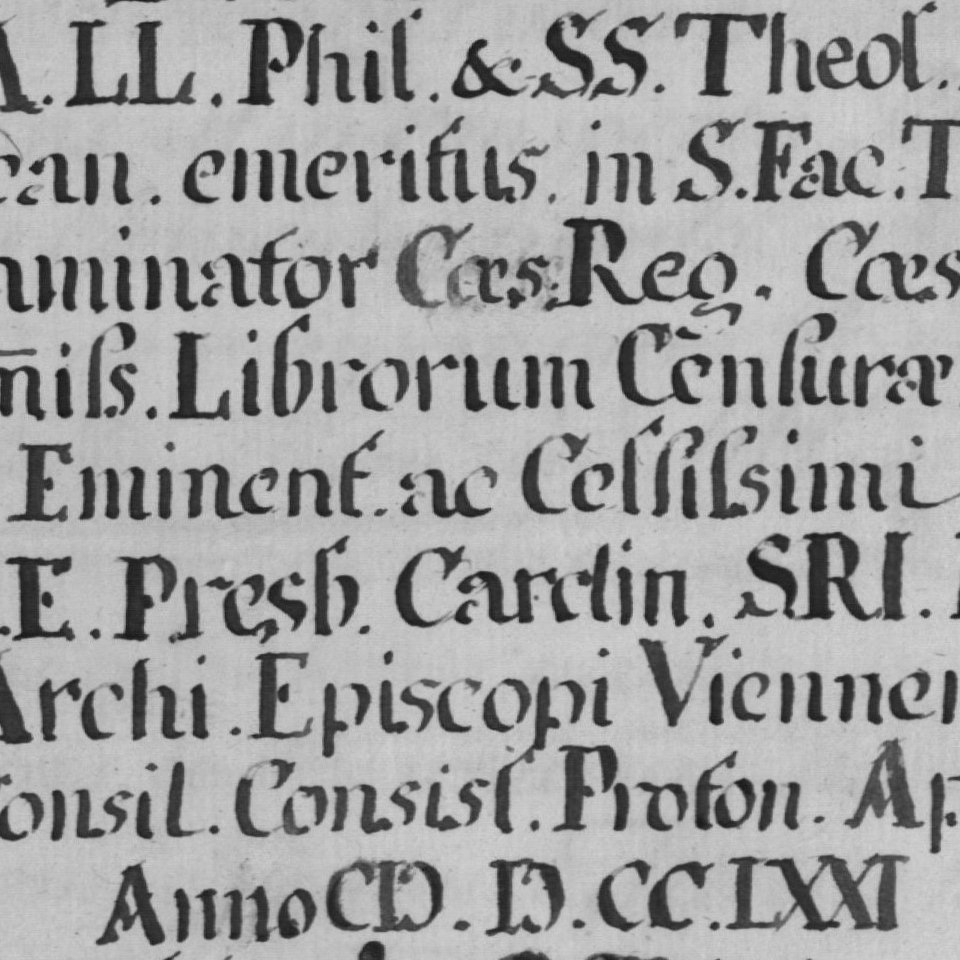 A. LL. Phil. & SS. Theol.
can. emeritus. in S. Fac. T
aminator Cæs. Reg. Cæs
m̄iſs. Librorum Cēnſuræ
Eminent. ac Celſiſsimi
.E. Presb. Cardin. SRI.
Archi. Episcopi Viennen
onsil. Consist. Proton. Ap
Anno CIↃ. IↃ. CC. LXXI